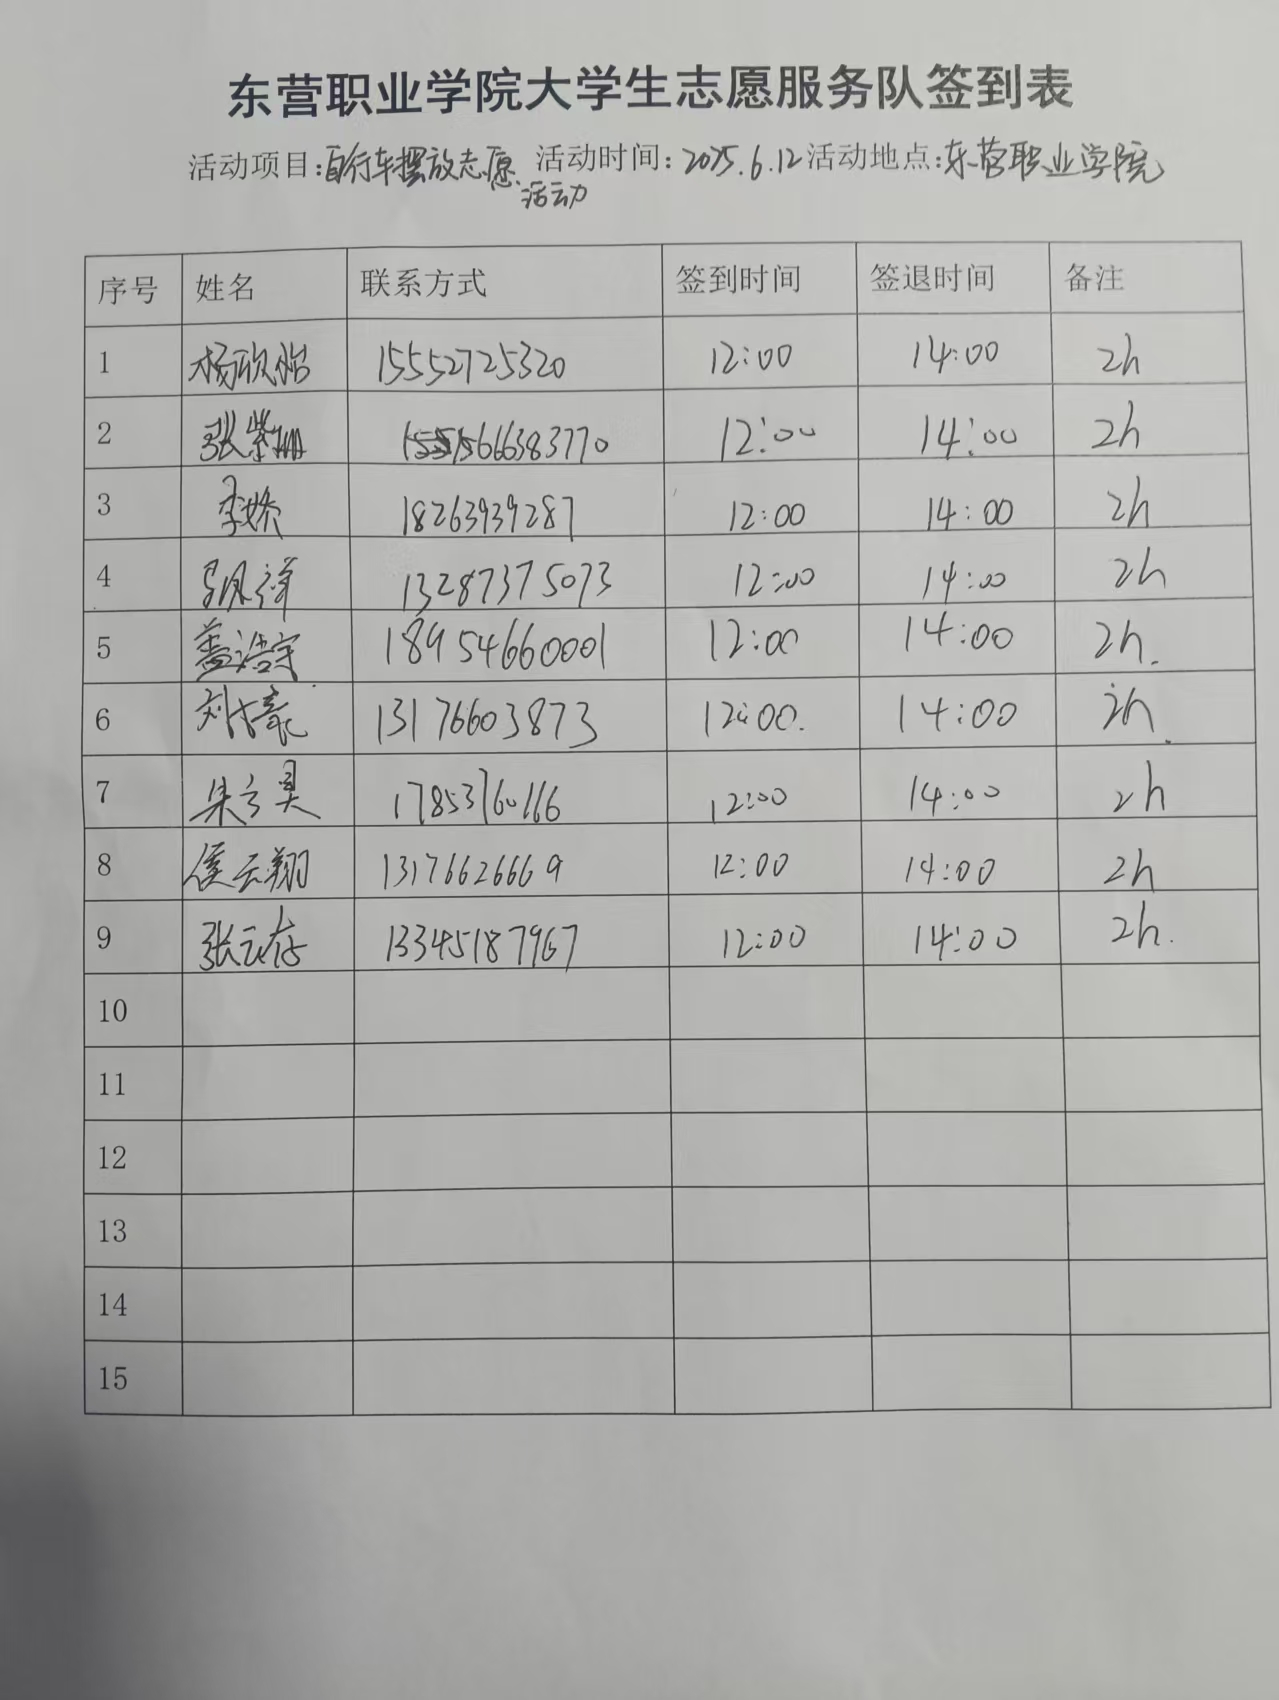 东营职业学院大学生志愿服务队签到表
活动项目:自行车摆放志愿活动 活动时间:2025.6.12 活动地点:东营职业学院
序号 姓名 联系方式 签到时间 签退时间 备注
1 杨欣怡 15552725320 12:00 14:00 2h
2 张紫珊 15666383770 12:00 14:00 2h
3 李娇 18263939287 12:00 14:00 2h
4 13287375073 12:00 14:00 2h
5 盖浩宇 18954660001 12:00 14:00 2h.
6 13176603873 12:00. 14:00 2h.
7 朱方昊 17853760166 12:00 14:00 2h
8 侯云翔 13176626669 12:00 14:00 2h
9 张云存 13345187967 12:00 14:00 2h.
10
11
12
13
14
15